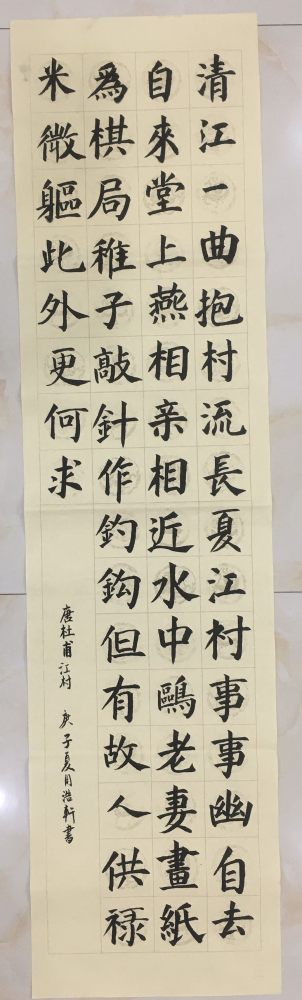 清江一曲抱村流長夏江村事事幽自去
自來堂上燕相亲相近水中鷗老妻畫紙
為棋局稚子敲針作釣鈎但有故人供禄
米微軀此外更何求
唐杜甫江村 庚子夏月浩軒書